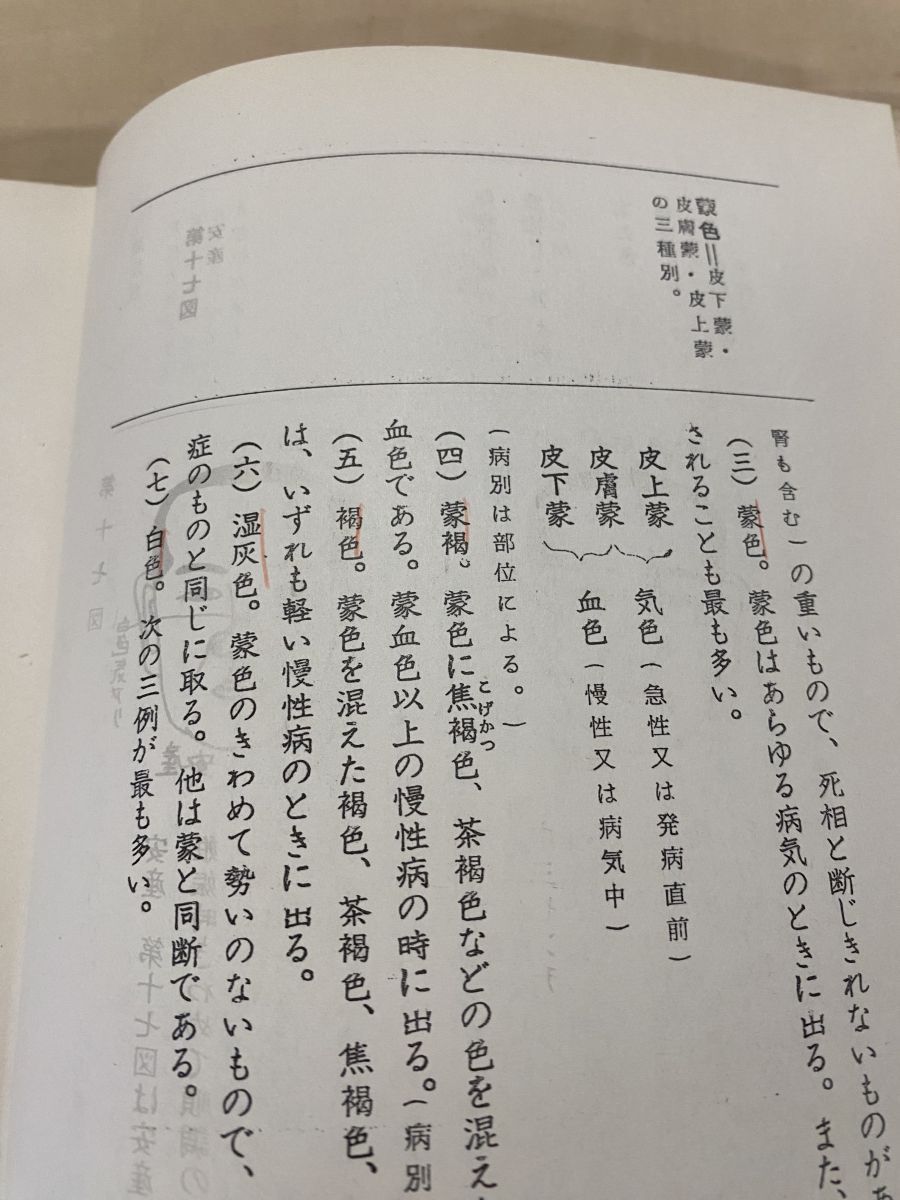 観色＝皮下蒙・
皮膚蒙・皮上蒙
の三種別。
腎も含む）の重いもので、死相と断じきれないものがあ
（三）蒙色。蒙色はあらゆる病気のときに出る。また、
されることも最も多い。
皮上蒙
皮膚蒙
皮下蒙
気色（急性又は発病直前）
血色（慢性又は病気中）
（病別は部位による。）
（四）蒙褐。蒙色に焦褐色、茶褐色などの色を混え
こげかつ
血色である。蒙血色以上の慢性病の時に出る。（病別
（五）褐色。蒙色を混えた褐色、茶褐色、焦褐色、
は、いずれも軽い慢性病のときに出る。
（六）湿灰色。蒙色のきわめて勢いのないもので、
症のものと同じに取る。他は蒙と同断である。
（七）白色。次の三例が最も多い。